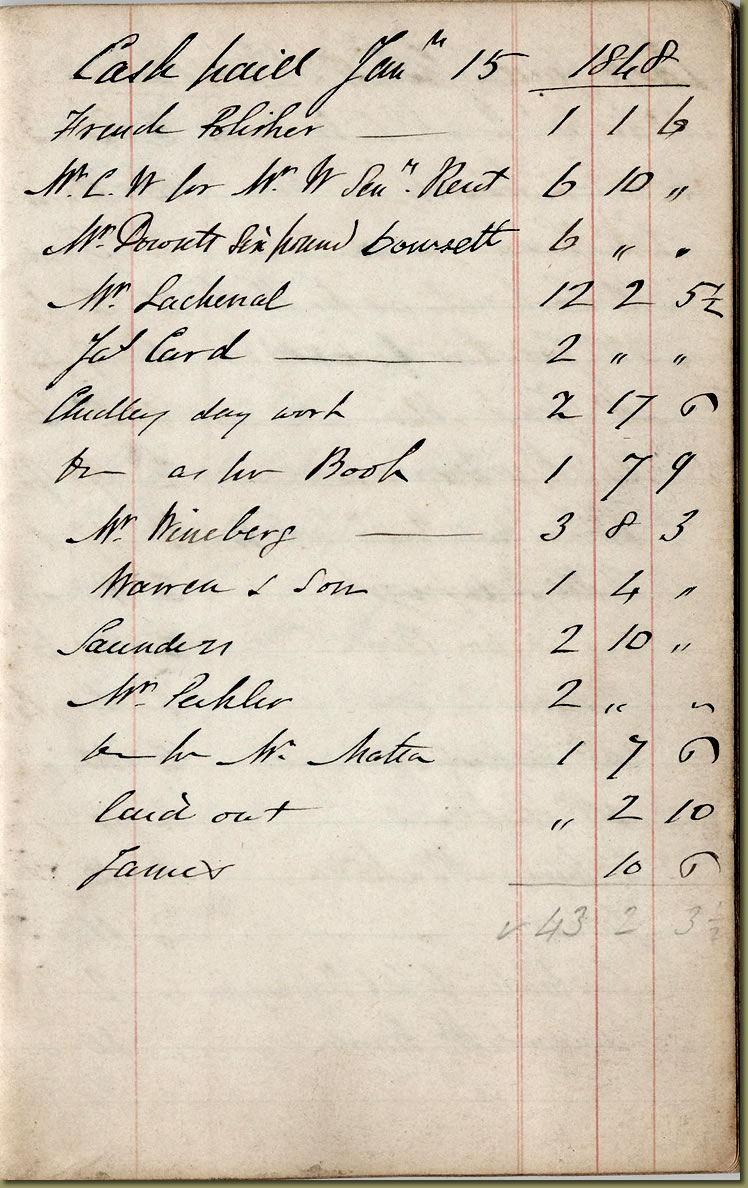 Cash paid Jan^ry 15 1848
French Polisher — 1 1 6
Mr. C. W for Mr. W Sen^r. Rent 6 10 "
Mr. Dowsett Six pound Cowsett 6 " "
Mr. Lachenal 12 2 5½
Jas Card — 2 " "
Chidley day work 2 17 6
Do as per Book 1 7 9
Mr. Wineberg — 3 8 3
Warren & Son 1 4 "
Saunders 2 10 "
Mr. 2 " "
Do for Mr. 1 7 6
laid out " 2 10
James 10 6
✓ 43 2 3½